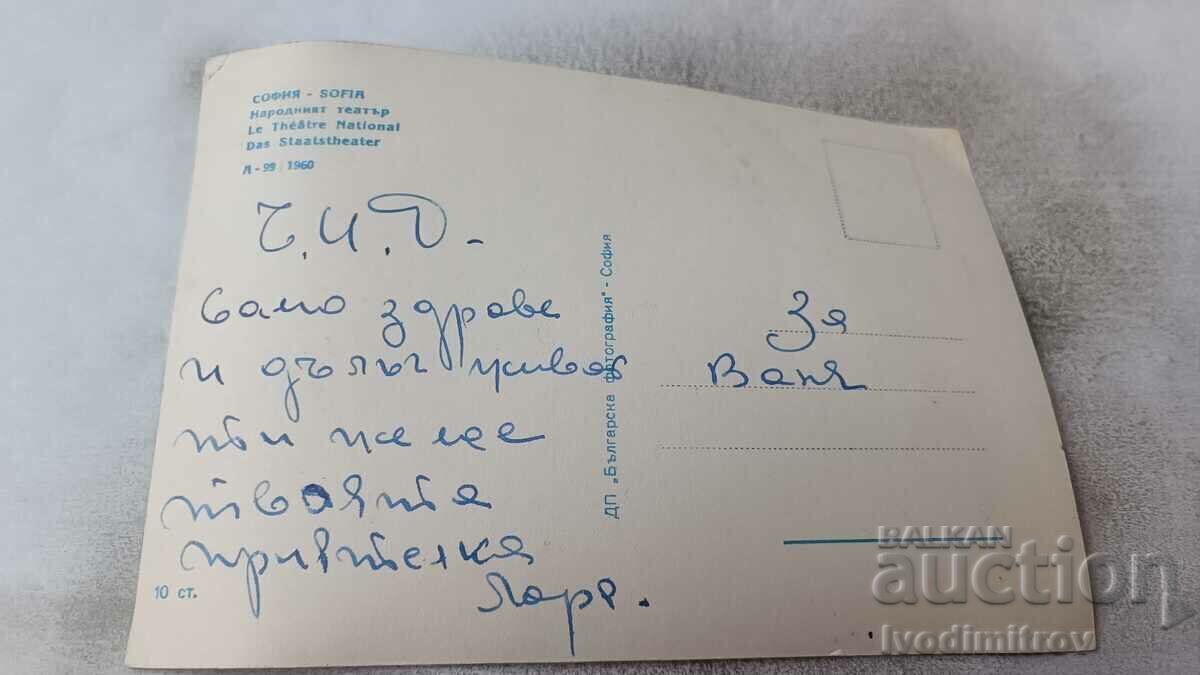 СОФИЯ - SOFIA
Народният театър
Le Théâtre National
Das Staatstheater
Л - 99 / 1960
Ч.И.Д -
само здраве
и дълъг живот
ти желае
твоята
приятелка
ДП „Българска фотография" - София
За
Ваня
10 ст.
BALKAN
auction
Ivodimitrov